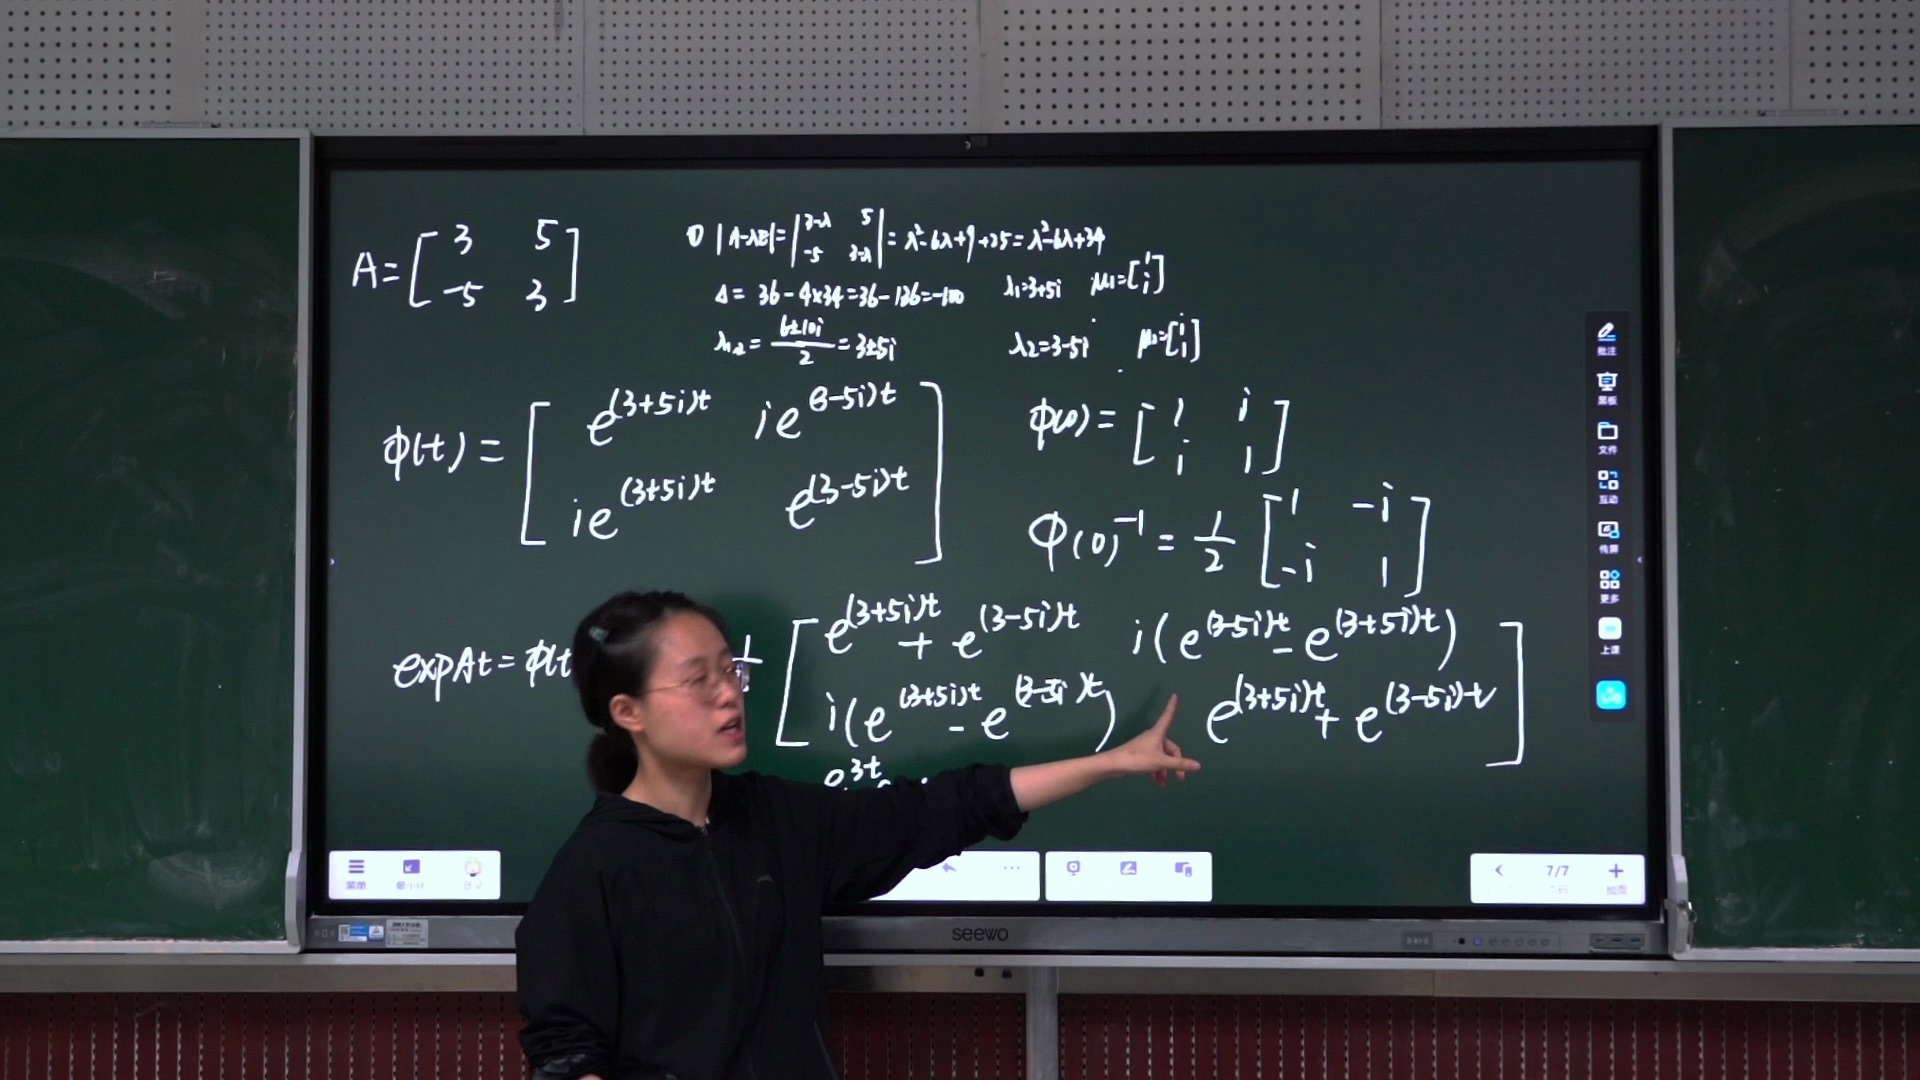 A = [ 3 5
-5 3 ]
① |A-λE| = | 3-λ 5
-5 3-λ | = λ²-6λ+9+25 = λ²-6λ+34
Δ = 36-4×34 = 36-136 = -100 λ1=3+5i μ1=[1
i]
λ1,2 = 6±10i
2 = 3±5i λ2=3-5i μ2=[i
1]
φ(t) = [ e^(3+5i)t ie^(3-5i)t
ie^(3+5i)t e^(3-5i)t ]
φ(0) = [ 1 i
i 1 ]
φ(0)^-1 = 1/2 [ 1 -i
-i 1 ]
expAt = φ(t [ e^(3+5i)t + e^(3-5i)t i(e^(3-5i)t - e^(3+5i)t)
i(e^(3+5i)t - e^(3-5i)t) e^(3+5i)t + e^(3-5i)t ]
e^3t
批注
黑板
文件
互动
传屏
更多
上课
菜单
最小化
7/7
加页
seewo